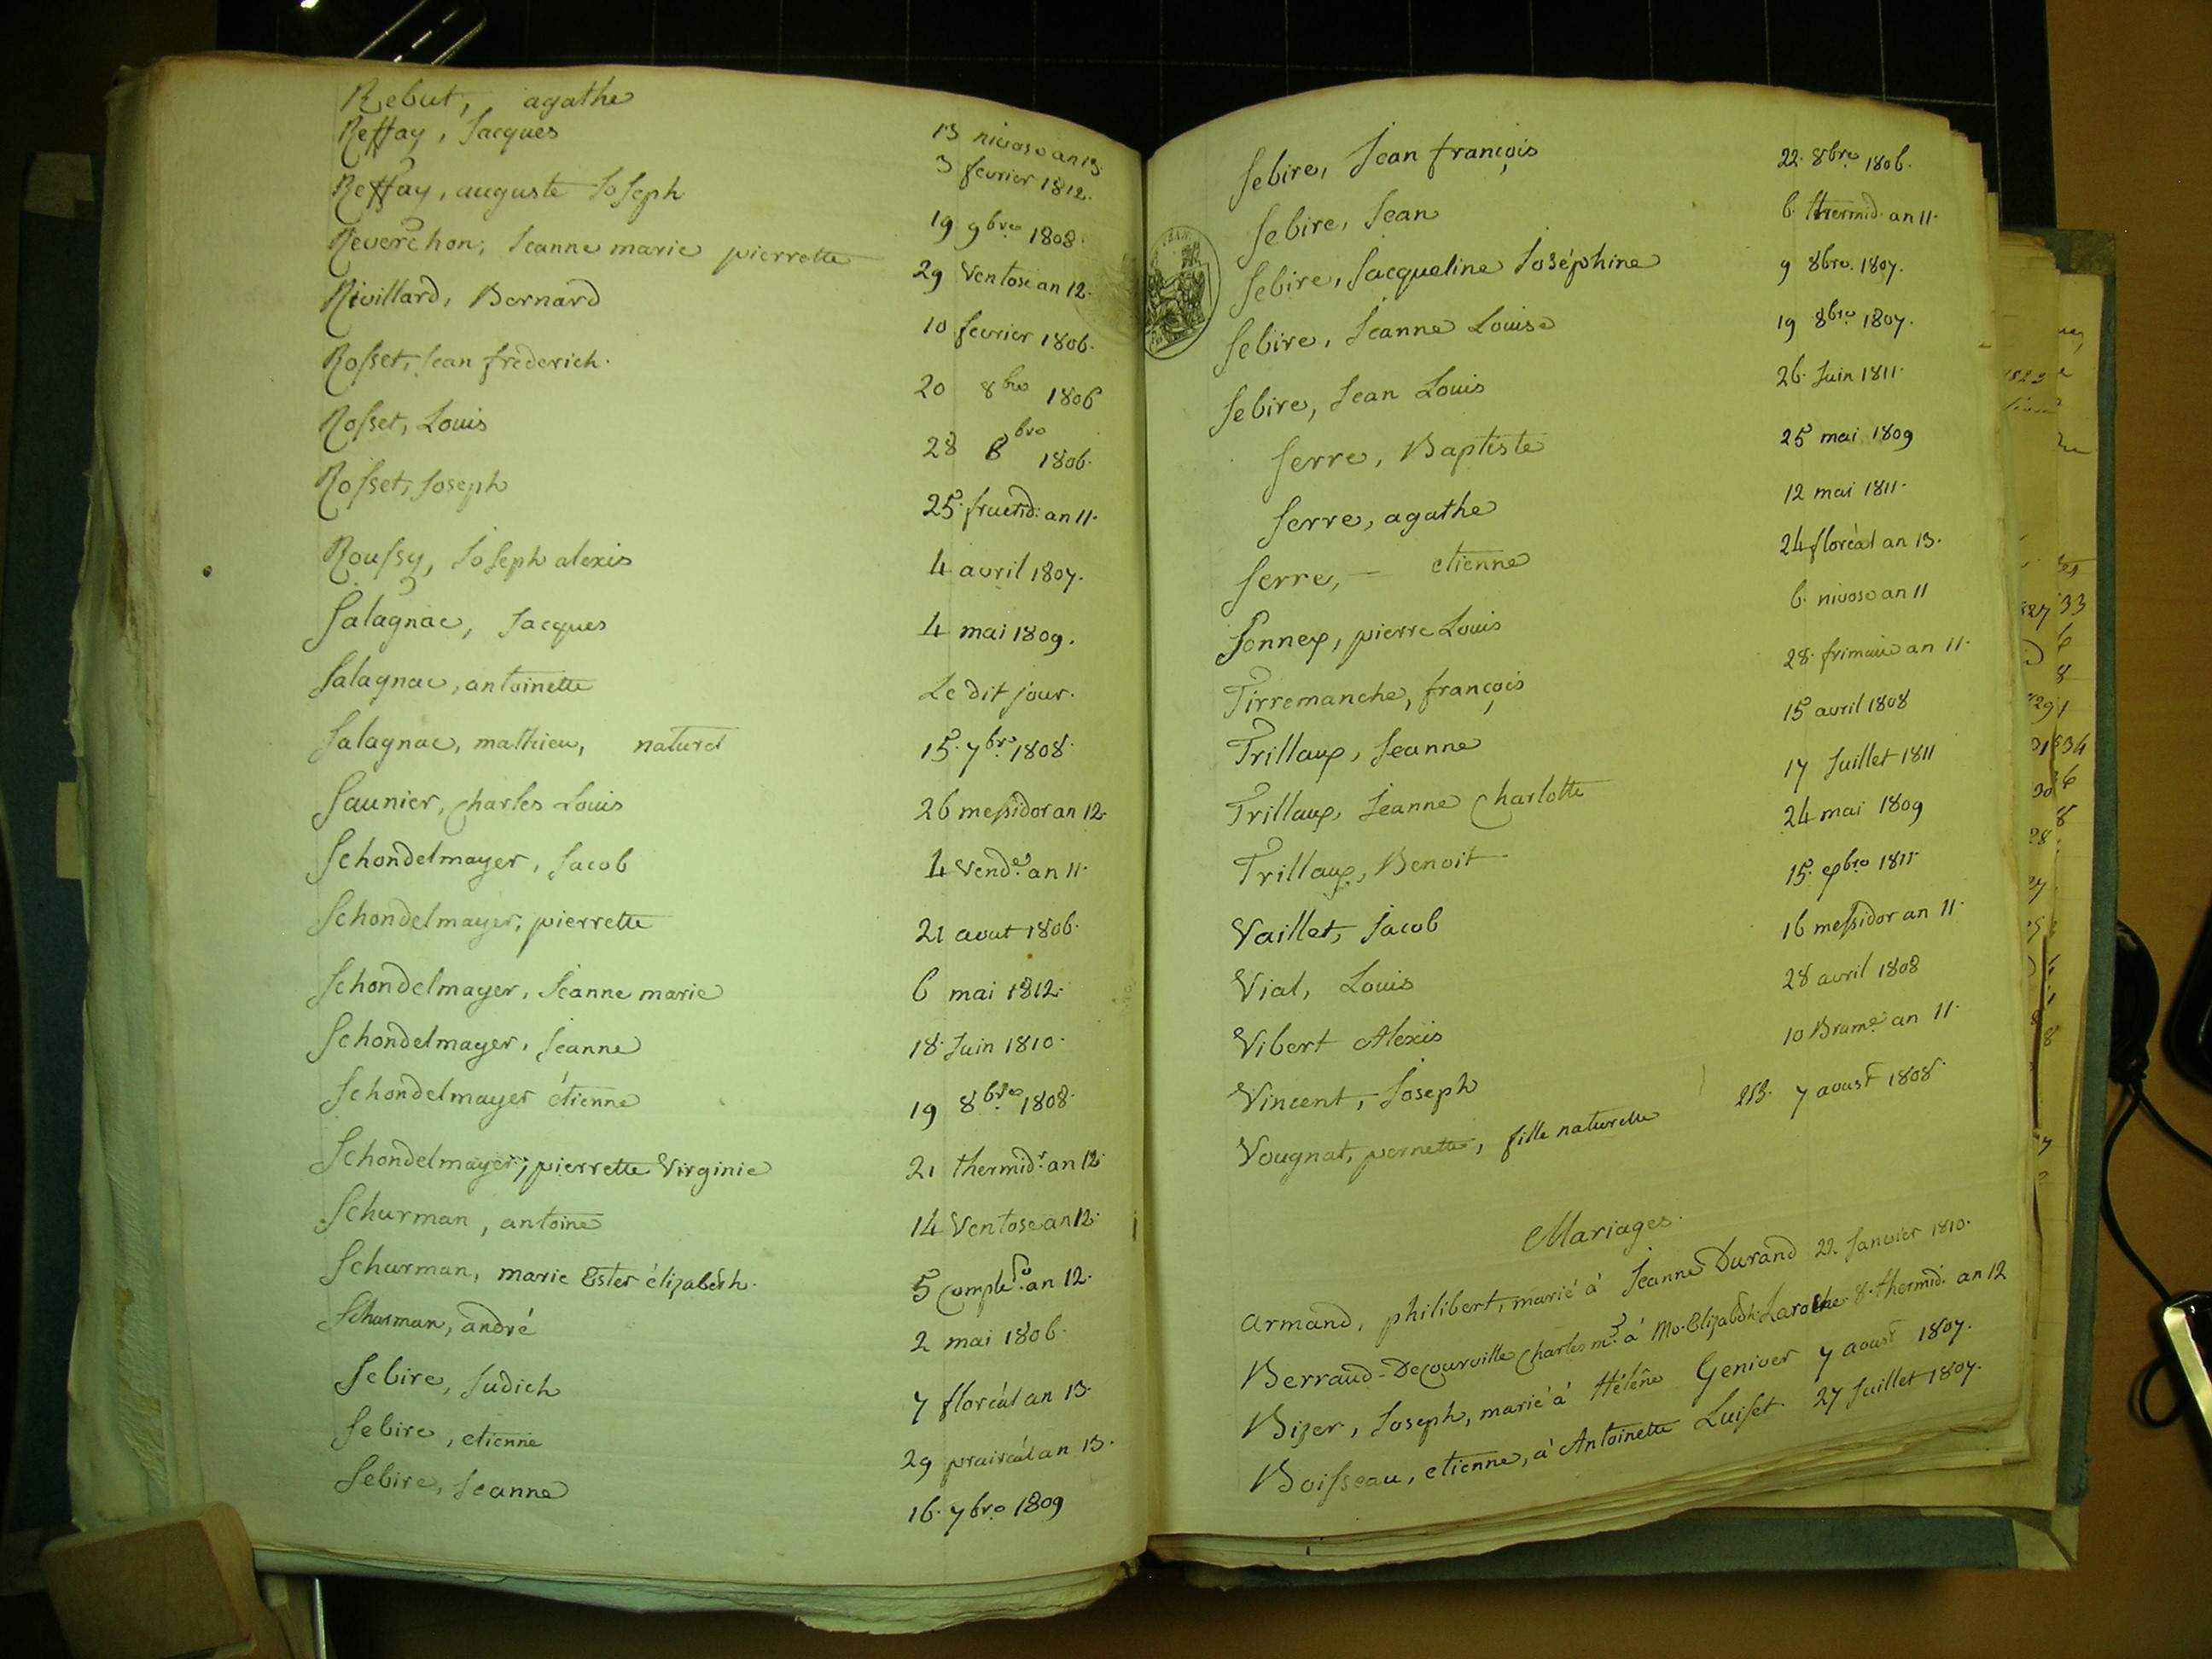 Rebut, agathe 13 nivose an 13.
Reffay, Jacques 3 fevrier 1812.
Reffay, auguste Joseph 19 9bre 1808.
Reverchon, Jeanne marie pierrette 29 Ventose an 12.
Rivillard, Bernard 10 fevrier 1806.
Rosset, Jean frederich. 20 8bre 1806
Rosset, Louis 28 8bre 1806.
Rosset, Joseph 25. fructid. an 11.
Roussy, Joseph alexis 4 avril 1807.
Salagnac, Jacques 4 mai 1809.
Salagnac, antoinette Le dit jour.
Salagnac, mathieu, naturel 15. 7bre 1808.
Saunier, Charles Louis 26 messidor an 12.
Schondelmayer, Jacob 4 Vend.e an 11.
Schondelmayer, pierrette 21 aout 1806.
Schondelmayer, Jeanne marie 6 mai 1812.
Schondelmayer, Jeanne 18. Juin 1810.
Schondelmayer étienne 19 8bre 1808.
Schondelmayer, pierrette Virginie 21 thermid.r an 12.
Schurman, antoine 14 Ventose an 12.
Schurman, marie Ester élizabeth. 5 Complé.re an 12.
Schurman, andré 2 mai 1806.
Sebire, Judich 7 floréal an 13.
Sebire, etienne 29 prairéal an 13.
Sebire, Jeanne 16. 7bre 1809
Sebire, Jean françois 22. 8bre 1806.
Sebire, Jean 6. thermid. an 11.
Sebire, Jacqueline Joséphine 9 8bre. 1807.
Sebire, Jeanne Louise 19 8bre 1807.
Sebire, Jean Louis 26. Juin 1811.
Serre, Baptiste 25 mai 1809
Serre, agathe 12 mai 1811.
Serre, – etienne 24 floréal an 13.
Sonnex, pierre Louis 6. nivose an 11
Tirremanche, françois 28. frimaire an 11.
Trillaux, Jeanne 15 avril 1808
Trillaux, Jeanne Charlotte 17 Juillet 1811
Trillaux, Benoit 24 mai 1809
Vaillet, Jacob 15. Xbre 1811.
Vial, Louis 16 messidor an 11.
Vibert Alexis 28 avril 1808
Vincent, Joseph 10 Brum.e an 11.
Vougnat, pernette, fille naturelle 213. 7 aoust 1808.
Mariages.
Armand, philibert, marié à Jeanne Durand 22 Janvier 1810.
Berraud-Decourville Charles m.é à Me. Elizabeth Laroche. 8. thermid. an 12
Bizer, Joseph, marié à Hélêne Geniver 7 aoust 1807.
Boisseau, etienne, à Antoinette Luiset. 27 Juillet 1807.